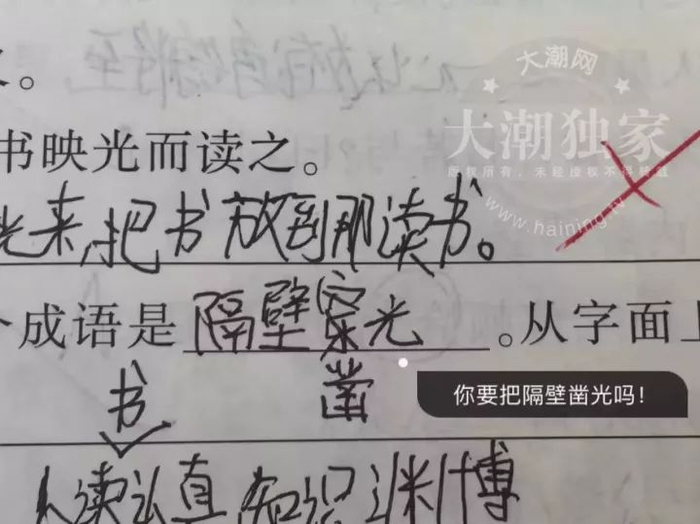 。
大潮网
大潮独家
版权所有，未经授权不得转载
www.haining.tv
书映光而读之。
光来,把书放到那读书。
成语是隔壁窃光。从字面上
书 凿
你要把隔壁凿光吗！
读认真,知识渊博